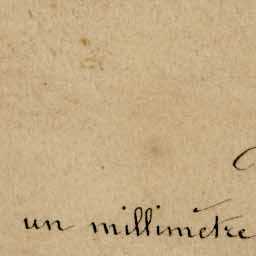 un millimètre